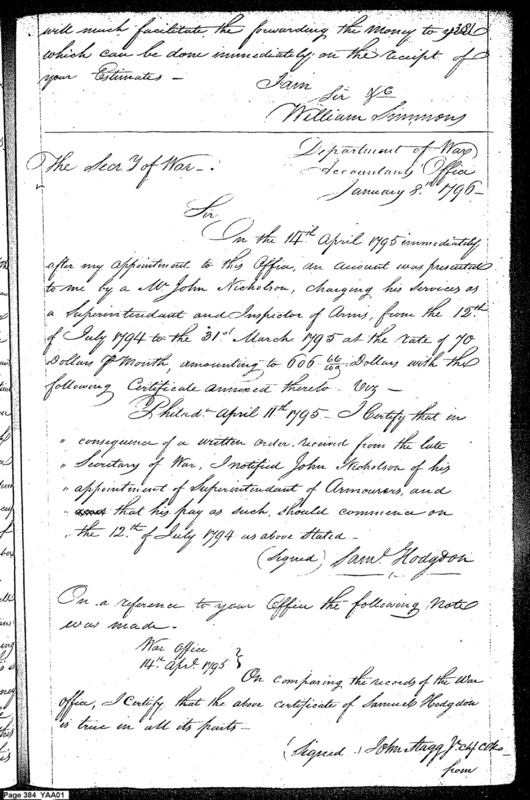 will much facilitate the forwarding the Money to you 381
which can be done immediately on the receipt of
your Estimates –
I am
Sir &C
William Simmons
Department of War
Accountants Office
January 8.th 1796 –
The Secr.y of War –
Sir
On the 14th April 1795 immediately
after my appointment to this Office, an account was presented
to me by a Mr John Nicholson, charging his services as
a Superintendant and Inspector of Arms, from the 12.th
of July 1794 to the 31st March 1795 at the rate of 70
Dollars P Month, amounting to 606 66/100 Dollars with the
following Certificate annexed thereto. Viz –
"Philad.a April 11th 1795 – I Certify that in
" consequence of a written order received from the late
" Secretary of War, I notified John Nicholson of his
" appointment of Superintendant of Armourers, and
" that his pay as such, should commence on
" the 12.th of July 1794 as above Stated –
(Signed) Sam.l Hodgdon
On a reference to your Office the following Note
was made –
War Office
14.th Apr.l 1795 }
On comparing the records of the War
office, I Certify that the above certificate of Samuel Hodgdon
is true in all its parts –
(Signed) John Stagg Jr. Chf Clk.
from
Page 384 YAA01